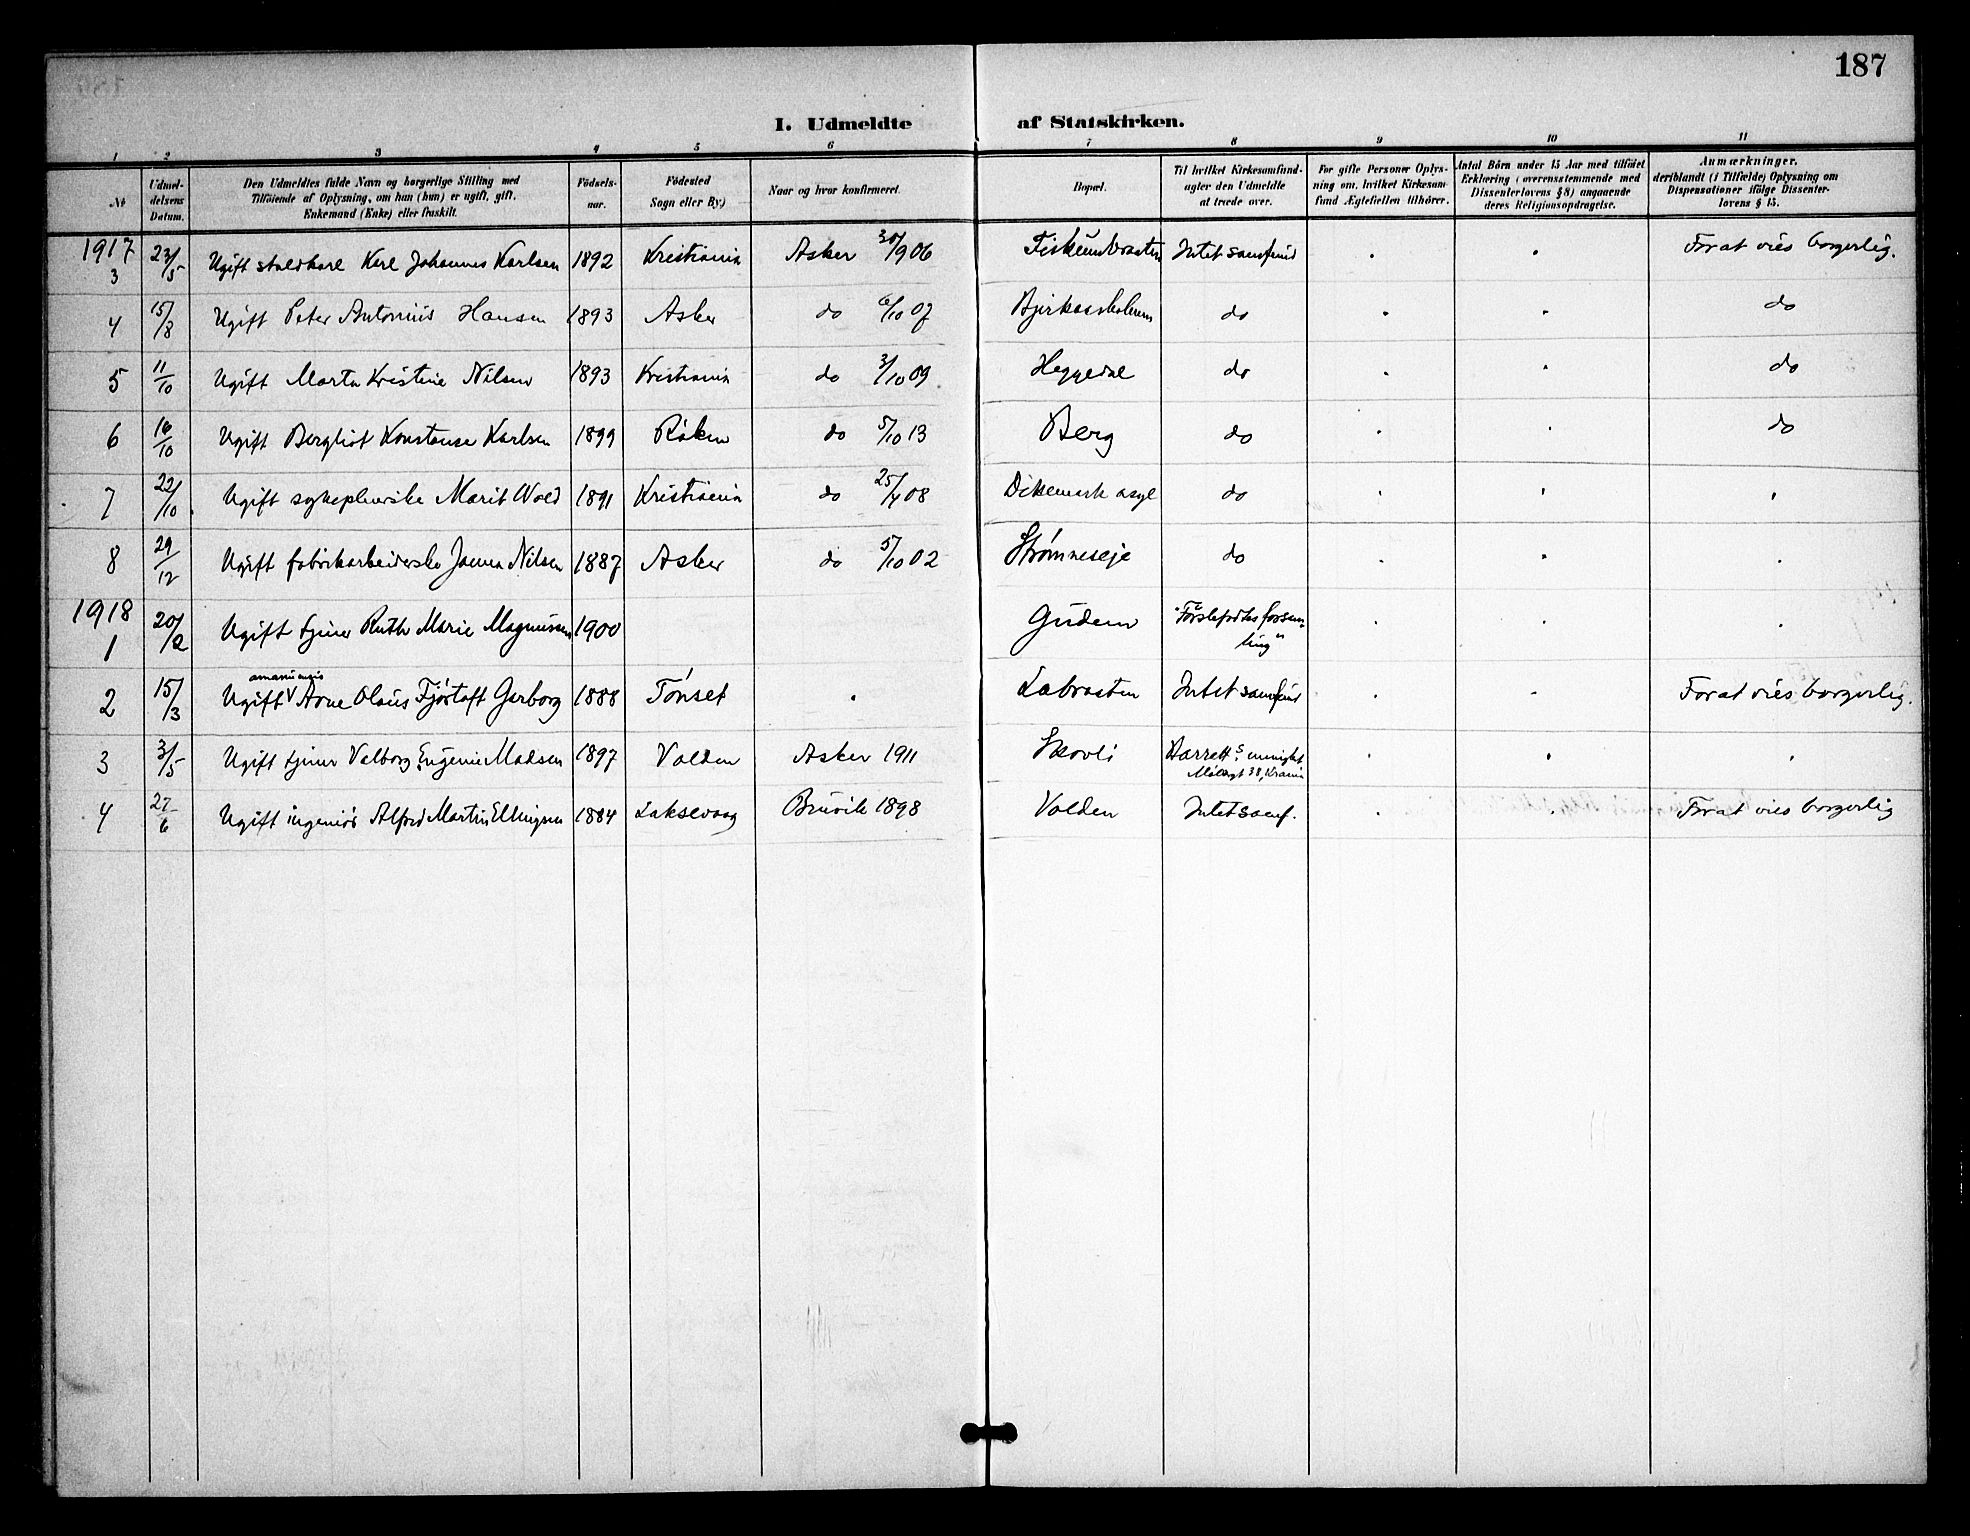 187
I. Udmeldte af Statskirken.
1 2 3 4 5 6 7 8 9 10 11
№
Udmeldelsens Datum.
Den Udmeldtes fulde Navn og borgerlige Stilling med
Tilføiende af Oplysning, om han (hun) er ugift, gift,
Enkemand (Enke) eller fraskilt.
Fødselsaar.
Fødested
Sogn eller By)
Naar og hvor konfirmeret.
Bopæl.
Til hvilket Kirkesamfund
agter den Udmeldte
at træde over.
For gifte Personer Oplys-
ning om, hvilket Kirkesam-
fund Ægtefællen tilhører.
Antal Børn under 15 Aar med tilføiet
Erklæring (overensstemmende med
Dissenterlovens § 8) angaaende
deres Religionsopdragelse.
Anmærkninger,
deriblandt (i Tilfælde) Oplysning om
Dispensationer ifølge Dissenter-
lovens § 15.
1917
3 23/5 Ugift staldkarl Karl Johannes Karlsen 1892 Kristiania Asker 30/9 06 Intet samfund . . For at vies borgerlig.
4 15/8 Ugift Peter Antonius Hansen 1893 Asker do 6/10 07 do . . do
5 11/10 Ugift Marta Kristine Nilsen 1893 Kristiania do 3/10 09 Heggedal do . . do
6 16/10 Ugift Bergliot Konstanse Karlsen 1899 Røken do 5/10 13 Berg do . . do
7 22/10 Ugift sykepleierske Marit Wold 1891 Kristiania do 25/4 08 Dikemark asyl do . . .
8 29/12 Ugift fabrikarbeiderske Nilsen 1887 Asker do 5/10 02 Strømneseje do . . .
1918
1 20/2 Ugift tjener Ruth Marie Magnussen 1900 Gudem "Førstefødtes forsam-
ling" . . .
amanuensis
2 15/3 Ugift V Arne Olaus Fjørtoft Garborg 1888 Tønset . Labraaten Intet samfund . . For at vies borgerlig.
3 3/5 Ugift tjener Valborg Eugenie Madsen 1897 Valden Asker 1911 Skovli Barretts menighet . . .
Møllergt 38, Krania
4 27/6 Ugift ingeniør Alfred Martin Ellingsen 1884 Laksevaag Bruvik 1898 Volden Intet samf. . . For at vies borgerlig